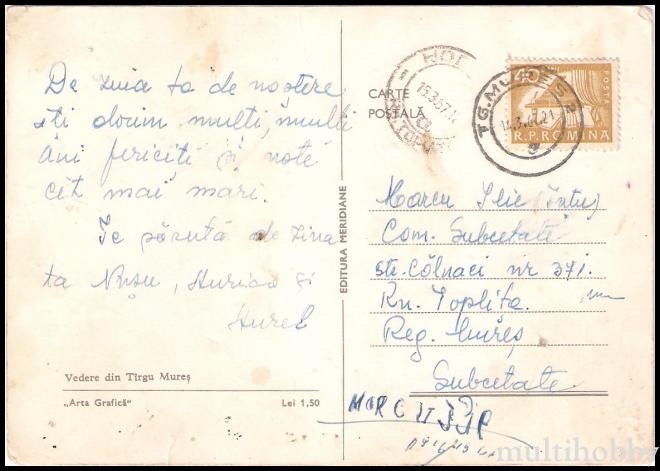 De ziua ta de naștere
îți dorim mulți, mulți
ani fericiti și note
cît mai mari.
Te părută de ziua
ta Nușu, și
Aurel
Vedere din Tîrgu Mureș
„Arta Grafică"
Lei 1,50
EDITURA MERIDIANE
CARTE
POȘTALĂ
15.3.67
TG. MUREȘ 2
40
POSTA
R.P.ROMINA
Marcu Ilie
Com. Subcetate
str. Călnaci nr 371.
Rn. Toplița.
Reg. Mureș
Subcetate
multihobby